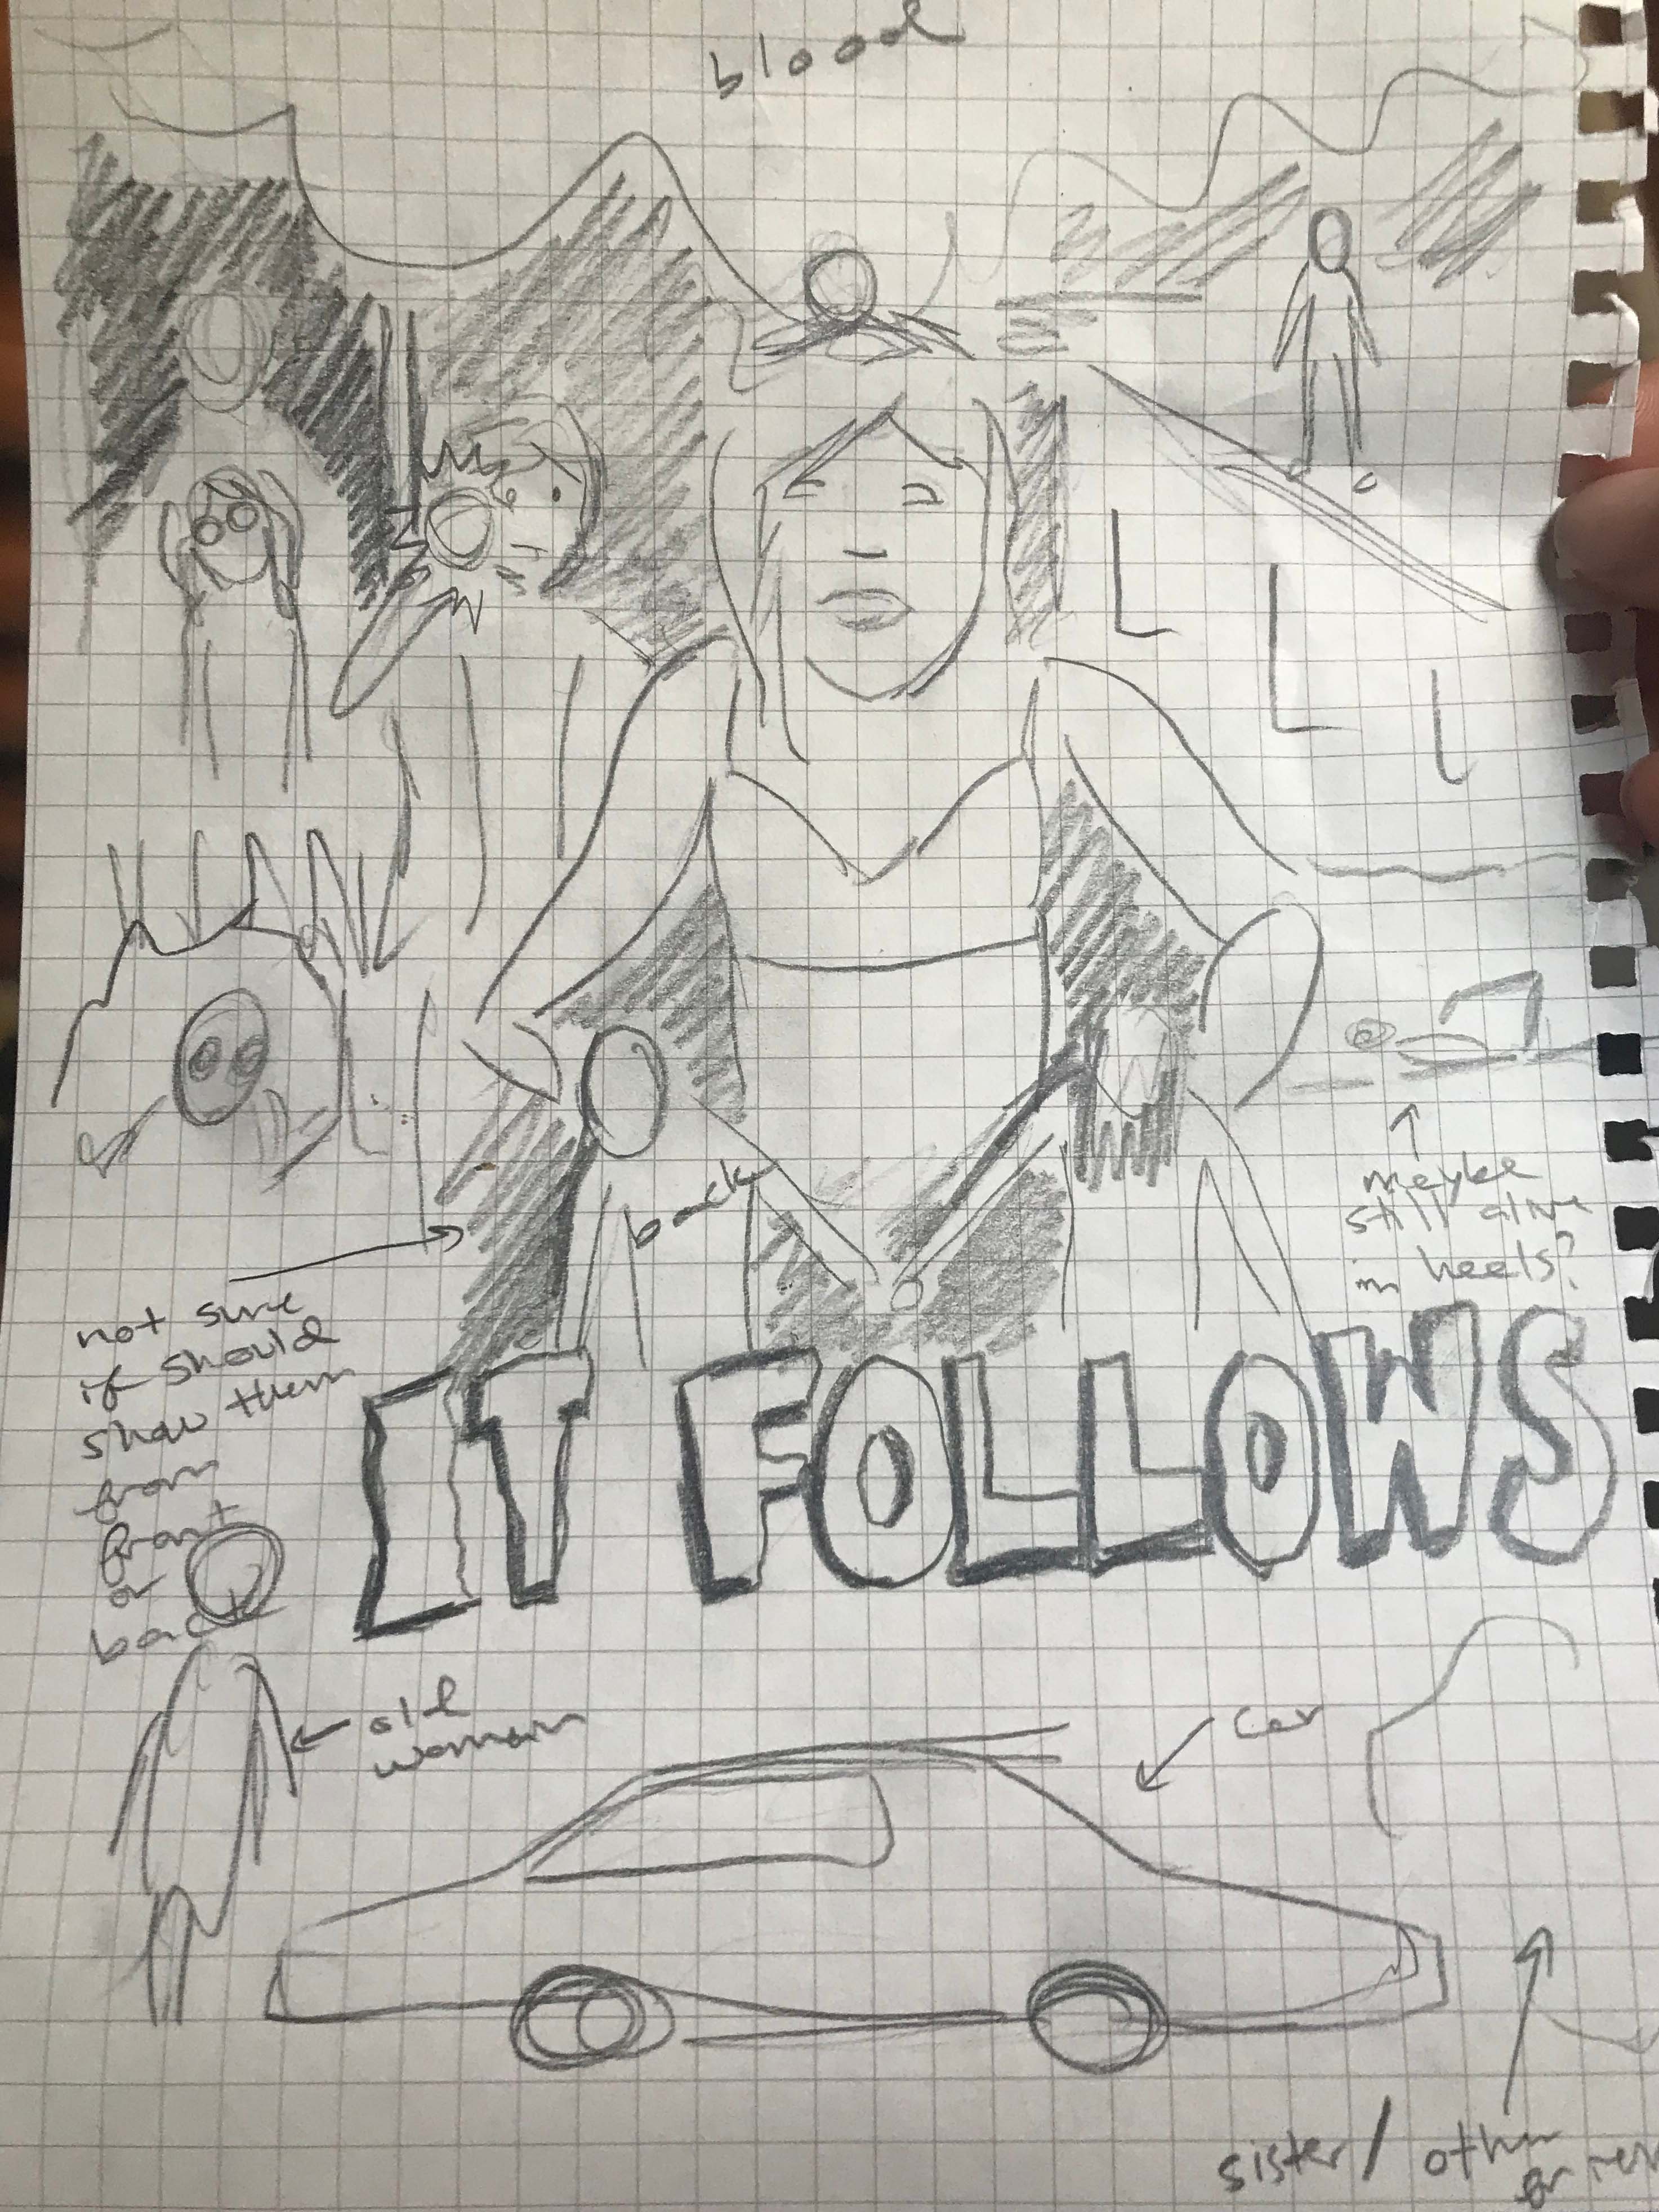 blood
back
maybe
still alive
in heels?
not sure
if should
show them
from
front
or
back
IT FOLLOWS
old
woman
car
sister/ other